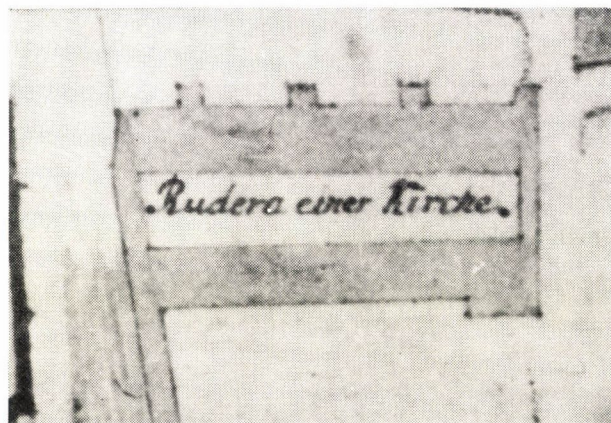 Rudera einer Kirche.